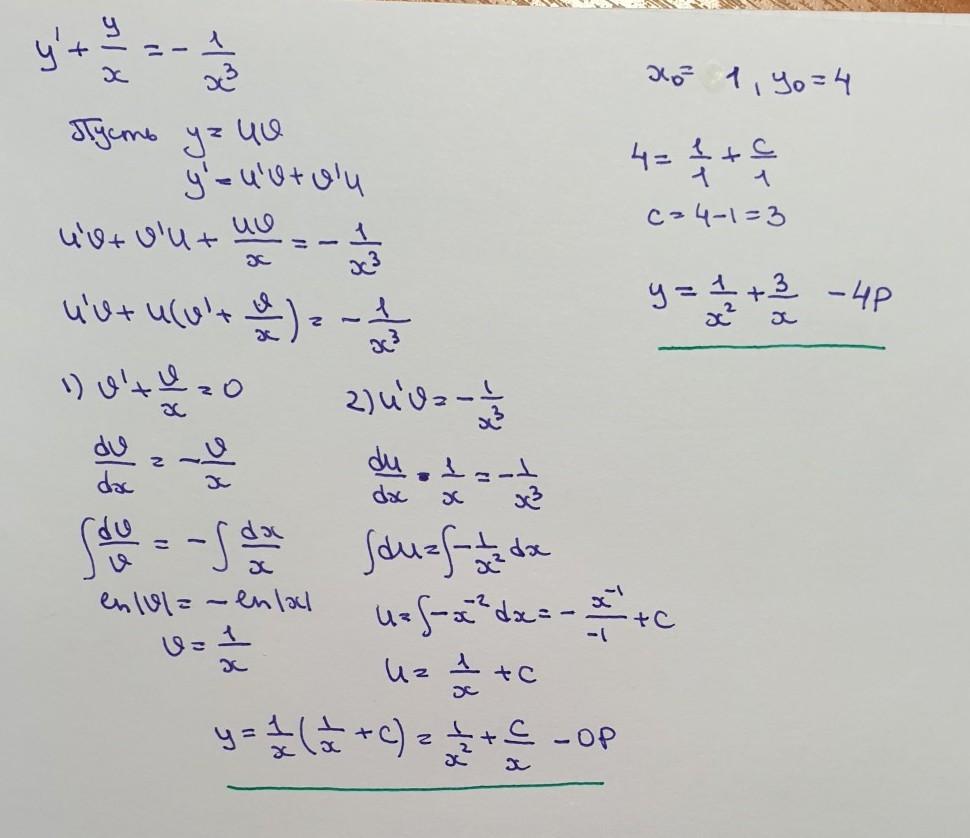 y' + y/x = - 1/x³
Пусть y = uv
y' = u'v + v'u
u'v + v'u + uv/x = - 1/x³
u'v + u(v' + v/x) = - 1/x³
1) v' + v/x = 0
dv/dx = - v/x
∫ dv/v = - ∫ dx/x
ln|v| = - ln|x|
v = 1/x
2) u'v = - 1/x³
du/dx · 1/x = - 1/x³
∫du = ∫ - 1/x² dx
u = ∫ -x⁻² dx = - x⁻¹/-1 + C
u = 1/x + C
y = 1/x (1/x + C) = 1/x² + C/x - ОР
x₀ = 1, y₀ = 4
4 = 1/1 + C/1
C = 4-1 = 3
y = 1/x² + 3/x - ЧР